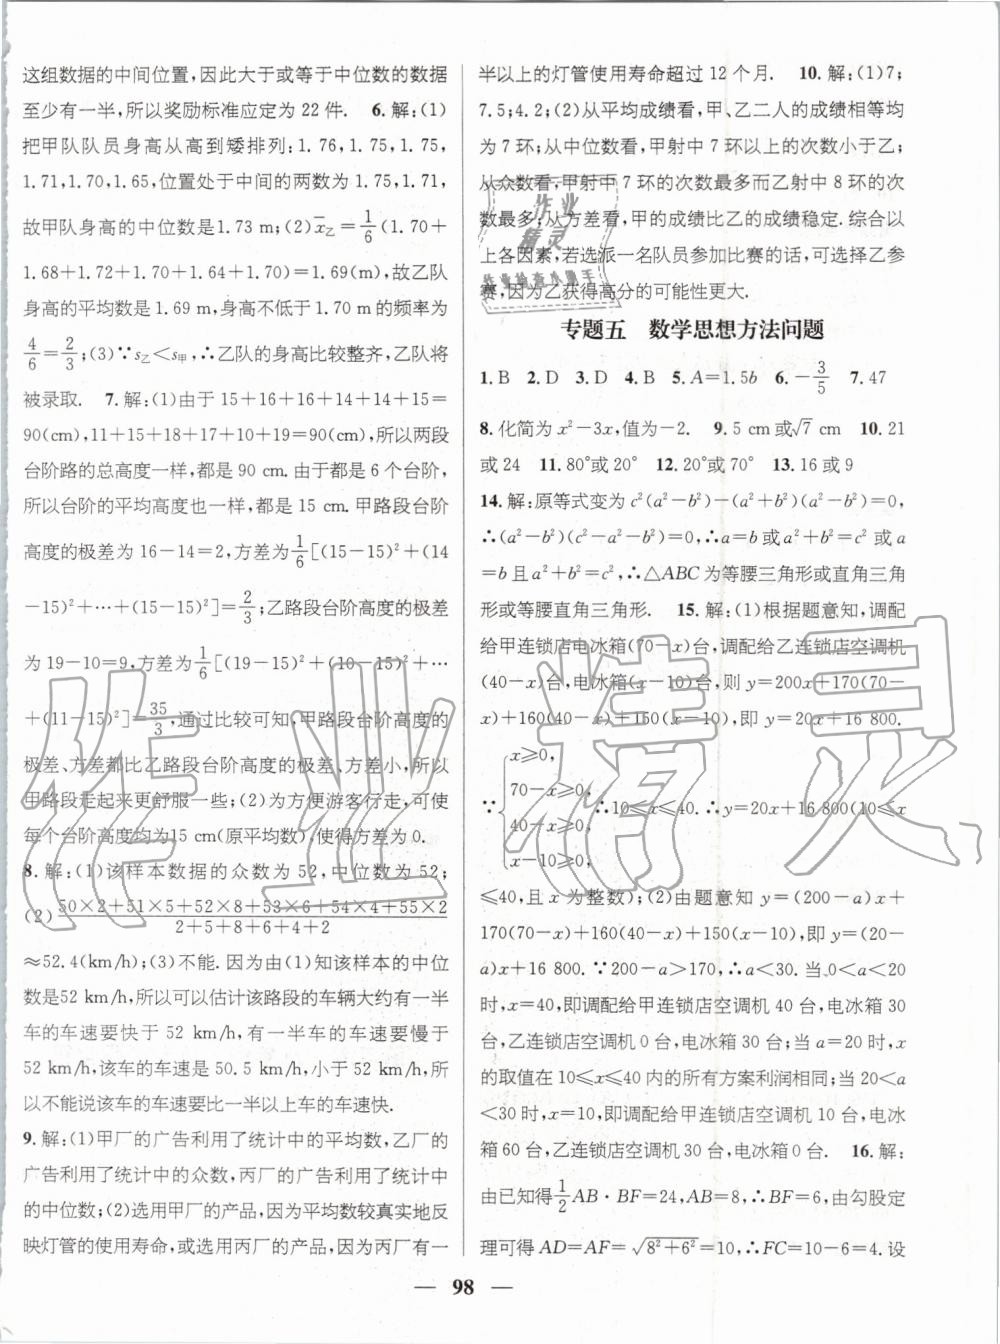 这组数据的中间位置,因此大于或等于中位数的数据
至少有一半,所以奖励标准应定为 22 件. 6. 解:(1)
把甲队队员身高从高到矮排列:1.76,1.75,1.75,
1.71,1.70,1.65,位置处于中间的两数为 1.75,1.71,
故甲队身高的中位数是 1.73 m;(2)x̄乙=1/6(1.70+
1.68+1.72+1.70+1.64+1.70)=1.69(m),故乙队
身高的平均数是 1.69 m,身高不低于 1.70 m 的频率为
4/6=2/3;(3)∵s乙<s甲,∴乙队的身高比较整齐,乙队将
被录取. 7. 解:(1)由于 15+16+16+14+14+15=
90(cm),11+15+18+17+10+19=90(cm),所以两段
台阶路的总高度一样,都是 90 cm. 由于都是 6 个台阶,
所以台阶的平均高度也一样,都是 15 cm. 甲路段台阶
高度的极差为 16-14=2,方差为1/6[(15-15)²+(14
-15)²+…+(15-15)²]=2/3;乙路段台阶高度的极差
为 19-10=9,方差为1/6[(19-15)²+(10-15)²+…
+(11-15)²]=35/3,通过比较可知,甲路段台阶高度的
极差、方差都比乙路段台阶高度的极差、方差小,所以
甲路段走起来更舒服一些;(2)为方便游客行走,可使
每个台阶高度均为15 cm(原平均数),使得方差为 0.
8. 解:(1)该样本数据的众数为 52,中位数为 52;
(2)(50×2+51×5+52×8+53×6+54×4+55×2)/(2+5+8+6+4+2)
≈52.4(km/h);(3)不能. 因为由(1)知该样本的中位
数是52 km/h,所以可以估计该路段的车辆大约有一半
车的车速要快于 52 km/h,有一半车的车速要慢于
52 km/h,该车的车速是 50.5 km/h,小于 52 km/h,所
以不能说该车的车速要比一半以上车的车速快.
9. 解:(1)甲厂的广告利用了统计中的平均数,乙厂的
广告利用了统计中的众数,丙厂的广告利用了统计中
的中位数;(2)选用甲厂的产品,因为平均数较真实地反
映灯管的使用寿命,或选用丙厂的产品,因为丙厂有一
半以上的灯管使用寿命超过 12 个月. 10. 解:(1)7;
7.5;4.2;(2)从平均成绩看,甲、乙二人的成绩相等均
为 7 环;从中位数看,甲射中 7 环以上的次数小于乙;
从众数看,甲射中 7 环的次数最多而乙射中 8 环的次
数最多;从方差看,甲的成绩比乙的成绩稳定. 综合以
上各因素,若选派一名队员参加比赛的话,可选择乙参
赛,因为乙获得高分的可能性更大.
专题五 数学思想方法问题
1. B 2. D 3. D 4. B 5. A=1.5b 6. -3/5 7. 47
8. 化简为 x²-3x,值为-2. 9. 5 cm或√7 cm 10. 21
或 24 11. 80°或 20° 12. 20°或 70° 13. 16 或 9
14. 解:原等式变为 c²(a²-b²)-(a²+b²)(a²-b²)=0,
∴(a²-b²)(c²-a²-b²)=0,∴a=b或a²+b²=c²或a
=b且a²+b²=c²,∴△ABC为等腰三角形或直角三角
形或等腰直角三角形. 15. 解:(1)根据题意知,调配
给甲连锁店电冰箱(70-x)台,调配给乙连锁店空调机
(40-x)台,电冰箱(x-10)台,则 y=200x+170(70-
x)+160(40-x)+150(x-10),即 y=20x+16 800.
∵{x≥0,
70-x≥0,
40-x≥0,
x-10≥0,
∴10≤x≤40. ∴y=20x+16 800(10≤x
≤40,且 x 为整数);(2)由题意知 y=(200-a)x+
170(70-x)+160(40-x)+150(x-10),即 y=(20-
a)x+16 800. ∵200-a>170,∴a<30. 当 0<a<20
时,x=40,即调配给甲连锁店空调机 40 台,电冰箱 30
台,乙连锁店空调机 0 台,电冰箱 30 台;当 a=20 时,x
的取值在 10≤x≤40 内的所有方案利润相同;当 20<a
<30 时,x=10,即调配给甲连锁店空调机 10 台,电冰
箱 60 台,乙连锁店空调机 30 台,电冰箱 0 台. 16. 解:
由已知得1/2AB·BF=24,AB=8,∴BF=6,由勾股定
理可得 AD=AF=√(8²+6²)=10,∴FC=10-6=4. 设
— 98 —
作业精灵
作业
精灵
作业检查小助手